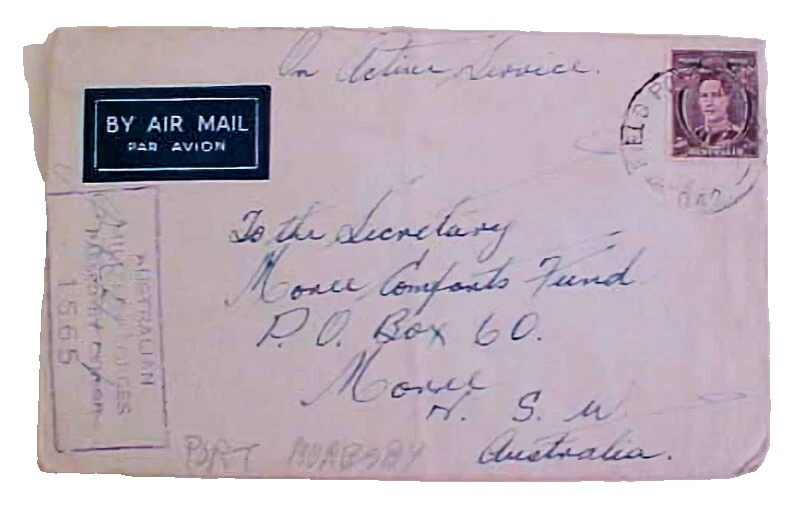 On Active Service.
BY AIR MAIL
PAR AVION
FIELD PO
042
AUSTRALIA
To the Secretary
Moree Comforts Fund
P. O. Box 60.
Moree
N. S. W.
Australia.
AUSTRALIAN
FORCES
1565
PORT MORESBY